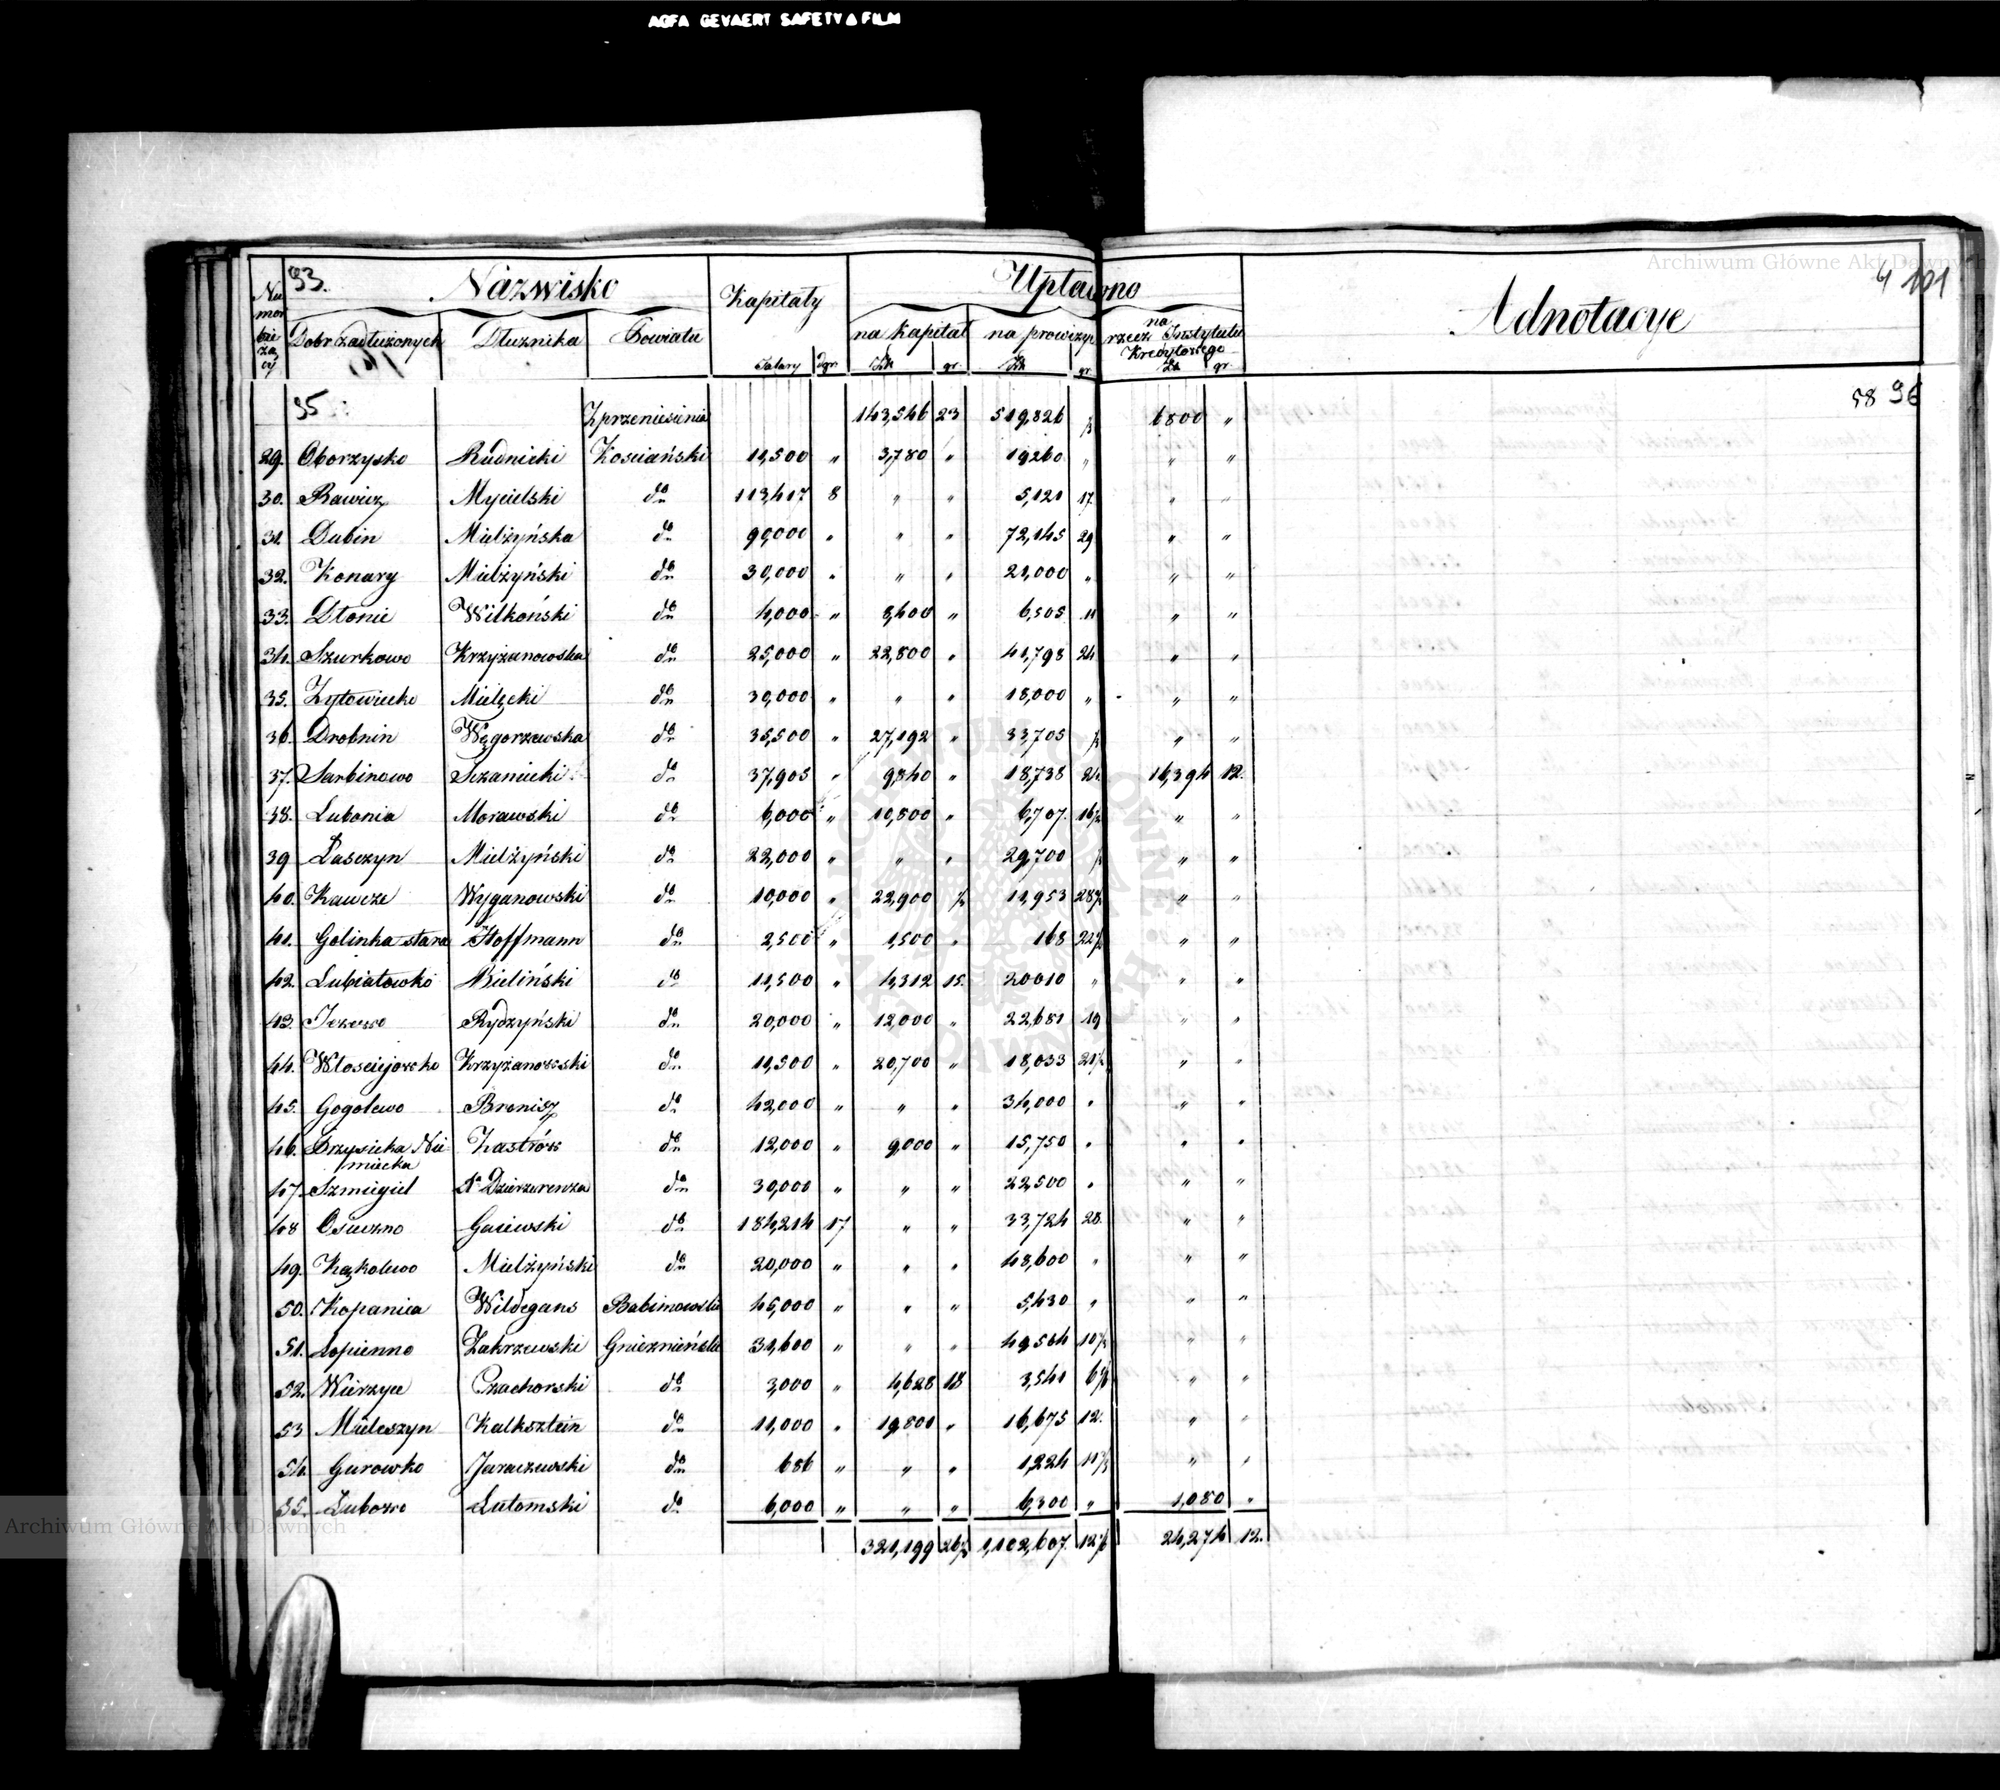 AGFA GEVAERT SAFETY FILM
Archiwum Główne Akt Dawnych
93. Nazwisko Kapitały Upłacono Adnotacye 101
Numer bieżący Dobr zadłużonych Dłużnika Powiatu na kapitał na prowizyę na rzecz Instytutu Kredytowego
Talary dgr. Zł gr. Zł gr. Zł gr.
58 96
95 Z przeniesienia 143,546 23 519,826 6800 "
29. Oborzysko Rudnicki Kościański 11,500 " 3,780 " 19260 " " "
30. Rawicz Mycielski do 113,417 8 " " 5,121 17. " "
31. Dubin Mielżyńska do 90,000 " " " 72,145 29 " "
32. Konary Mielżyński do 30,000 " " " 21,000 " " "
33. Dłonie Wilkoński do 4,000 " 8,400 " 6,505 11 " "
34. Szurkowo Krzyżanowska do 25,000 " 22,800 " 41,798 24 " "
35. Zytowiecko Mielęcki do 30,000 " " " 18,000 " " "
36. Drobnin Węgorzewska do 35,500 " 27,192 " 33,705 " "
37. Sarbinowo Sczaniecki do 37,905 " 9,840 " 18,738 24. 16,394 12.
38. Lubonia Morawski do 6,000 " 10,800 " 6,707. 16½ " "
39 Łasczyn Mielżyński do 22,000 " " " 29,700 " "
40. Kawcze Wyganowski do 10,000 " 22,900 ½ 11,953 28½ " "
41. Golinka stara Hoffmann do 2,500 " 1,500 " 168 22½ " "
42. Lubiatowko Bieliński do 11,500 " 4,312 15. 20010 " " "
43. Jezewo Rydzyński do 20,000 " 12,000 " 22,681 19 " "
44. Włosciejewko Krzyżanowski do 11,500 " 20,700 " 18,033 21½ " "
45. Gogolewo Bronisz do 42,000 " " " 34,000 " " "
46. Drzęwicka Niemiecka Zastrów do 12,000 " 9,000 " 15,750 " " "
47. Szmiegiel do 30,000 " " " 22,500 " " "
48 Osieczno Gaiewski do 184,214 17 " " 33,724 28. " "
49. Kąkolewo Mielżyński do 20,000 " " " 48,600 " " "
50. Kopanica Wildegans Babimowski 45,000 " " " 5,430 " " "
51. Łopienno Zakrzewski Gnieznieński 31,600 " " " 49,504 10½ " "
52. Wierzyce Czachorski do 3,000 " 4,628 18 3,541 " "
53 Mieleszyn Kalksztein do 11,000 " 19,800 " 16,675 12. " "
54. Gurowko Jaraczewski do 686 " " " 1,224 " "
55. Lubowo Lutomski do 6,000 " " " 6,300 " 1,080 "
321,199 26½ 1,102,607. 24,274 12.
Archiwum Główne Akt Dawnych